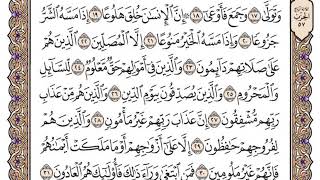 وَتَوَلَّىٰ ١٧ وَجَمَعَ فَأَوْعَىٰ ١٨ إِنَّ الْإِنسَانَ خُلِقَ هَلُوعًا ١٩ إِذَا مَسَّهُ الشَّرُّ
جَزُوعًا ٢٠ وَإِذَا مَسَّهُ الْخَيْرُ مَنُوعًا ٢١ إِلَّا الْمُصَلِّينَ ٢٢ الَّذِينَ هُمْ
عَلَىٰ صَلَاتِهِمْ دَائِمُونَ ٢٣ وَالَّذِينَ فِي أَمْوَالِهِمْ حَقٌّ مَّعْلُومٌ ٢٤ لِّلسَّائِلِ
وَالْمَحْرُومِ ٢٥ وَالَّذِينَ يُصَدِّقُونَ بِيَوْمِ الدِّينِ ٢٦ وَالَّذِينَ هُم مِّنْ عَذَابِ
رَبِّهِم مُّشْفِقُونَ ٢٧ إِنَّ عَذَابَ رَبِّهِمْ غَيْرُ مَأْمُونٍ ٢٨ وَالَّذِينَ هُمْ
لِفُرُوجِهِمْ حَافِظُونَ ٢٩ إِلَّا عَلَىٰ أَزْوَاجِهِمْ أَوْ مَا مَلَكَتْ أَيْمَانُهُمْ
فَإِنَّهُمْ غَيْرُ مَلُومِينَ ٣٠ فَمَنِ ابْتَغَىٰ وَرَاءَ ذَٰلِكَ فَأُولَٰئِكَ هُمُ الْعَادُونَ ٣١
الحزب
٥٧